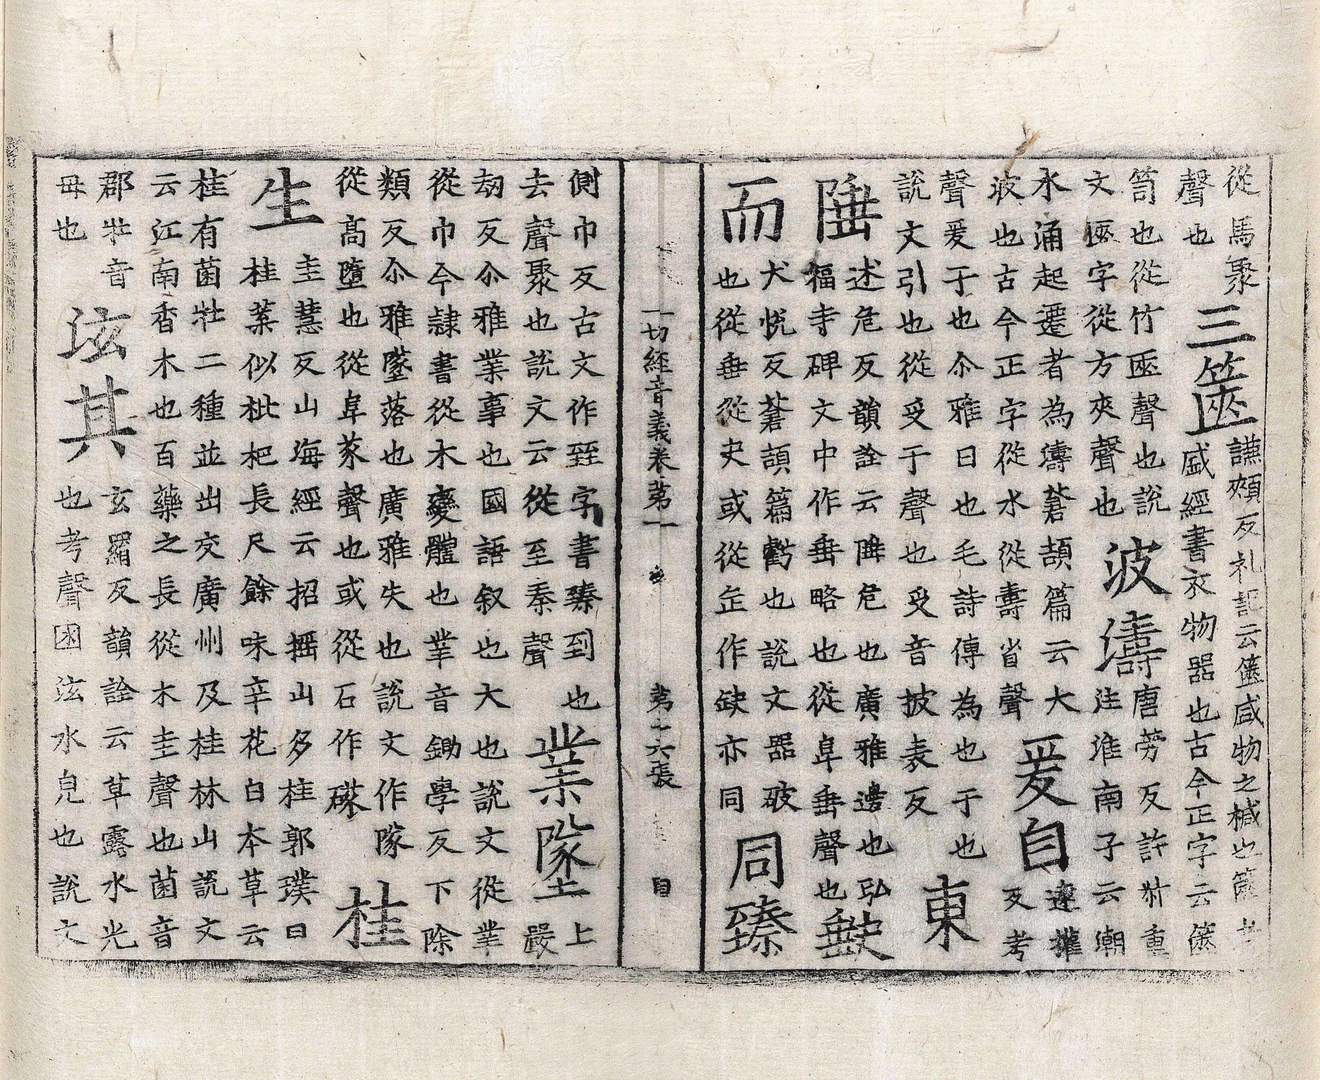 從馬聚
聲也
三篋
謙頰反礼記云篋咸物之椷也篋者
盛經書衣物器也古今正字云篋
笥也從竹匧聲也說
文匧字從方夾聲也
波濤
唐勞反許叔重
注淮南子云潮
水涌起還者為濤蒼頡篇云大
波也古今正字從水從壽省聲
爰自
遠權
反考
聲爰于也尒雅曰也毛詩傳為也于也
說文引也從𠬪于聲也𠬪音披表反
東
陲
述危反韻詮云陲危也廣雅邊也弘
福寺碑文中作垂略也從阜垂聲也
𡙇
而
犬悅反蒼頡篇虧也說文器破
也從垂從史或從缶作缺亦同
同臻
一切經音義卷第一 第二六張 目
側巾反古文作臸字書臻到也
去聲聚也說文云從至秦聲
業墜
上
嚴
刼反尒雅業事也國語叙也大也說文從丵
從巾今隷書從木變體也丵音鋤學反下除
類反尒雅墜落也廣雅失也說文作隊
從髙墮也從阜㒸聲也或從石作磜
桂
生
圭慧反山海經云招搖山多桂郭璞曰
桂葉似枇杷長尺餘味辛花白本草云
桂有菌壯二種並出交廣州及桂林山說文
云江南香木也百藥之長從木圭聲也菌音
郡壯音
毋也
泫其
玄羂反韻詮云草露水光
也考聲困泫水皃也說文